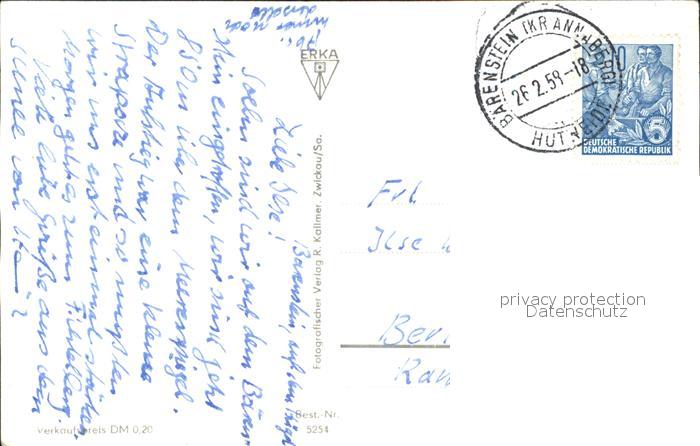 Liebe Ilse!
Soeben sind wir auf dem Bären-
stein eingetroffen, wir sind jetzt
850 m über dem Meeresspiegel.
Der Aufstieg war eine kleine
Strapaze und so mußten
wir uns erst einmal stärken.
Morgen geht es zum Fichtelberg.
Viele liebe Grüße aus dem
ERKA
Fotografischer Verlag R. Kallmer, Zwickau/Sa.
Verkaufspreis DM 0,20
Best.-Nr.
5254
BÄRENSTEIN (KR ANNABERG)
26.2.58-18
DEUTSCHE
DEMOKRATISCHE REPUBLIK
5
Frl.
Ilse
Ber
privacy protection
Datenschutz